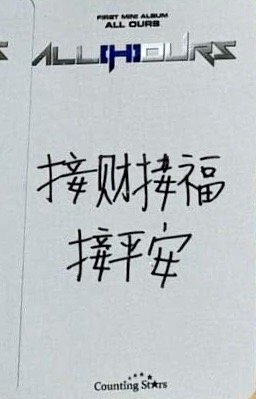 FIRST MINI ALBUM
ALL OURS
ALL[H]OURS
接财接福
接平安
Counting Stars